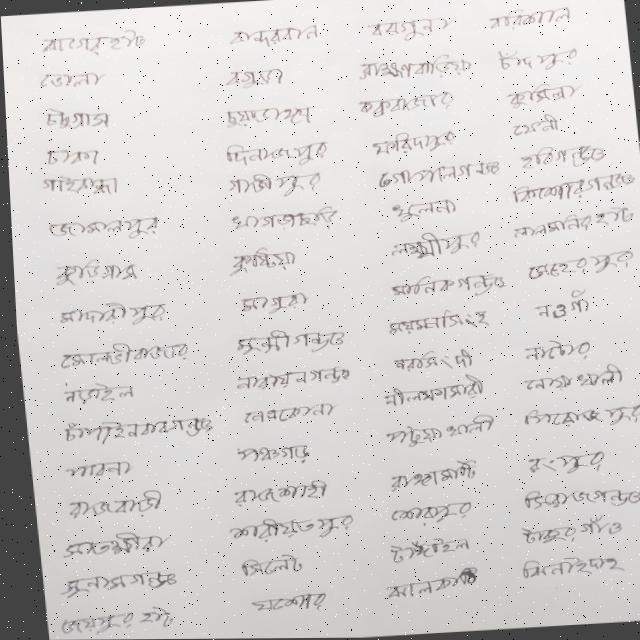 বাগেরহাট বান্দরবান বরগুনা বরিশাল
ভোলা বগুড়া ব্রাহ্মণবাড়িয়া চাঁদপুর
চট্টগ্রাম চুয়াডাঙ্গা কক্সবাজার কুমিল্লা
ঢাকা দিনাজপুর ফরিদপুর ফেনী
গাইবান্ধা গাজীপুর গোপালগঞ্জ হবিগঞ্জ
জামালপুর খাগড়াছড়ি খুলনা কিশোরগঞ্জ
কুড়িগ্রাম কুষ্টিয়া লক্ষ্মীপুর লালমনিরহাট
মাদারীপুর মাগুরা মানিকগঞ্জ মেহেরপুর
মৌলভীবাজার মুন্সীগঞ্জ ময়মনসিংহ নওগাঁ
নড়াইল নারায়নগঞ্জ নরসিংদী নাটোর
চাঁপাইনবাবগঞ্জ নেত্রকোনা নীলফামারী নোয়াখালী
পাবনা পঞ্চগড় পটুয়াখালী পিরোজপুর
রাজবাড়ী রাজশাহী রাঙ্গামাটি রংপুর
সাতক্ষীরা শরীয়তপুর শেরপুর সিরাজগঞ্জ
সুনামগঞ্জ সিলেট টাঙ্গাইল ঠাকুরগাঁও
জয়পুরহাট যশোর ঝালকাঠি ঝিনাইদাহ